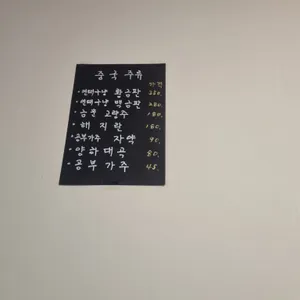 중국 주류
가격
·연태구냥 황금판 230.
·연태구냥 백금판 200.
·금문 고량주 180.
·해지람 160.
·공부가주 자약 90.
·양하대곡 80.
·공부가주 48.